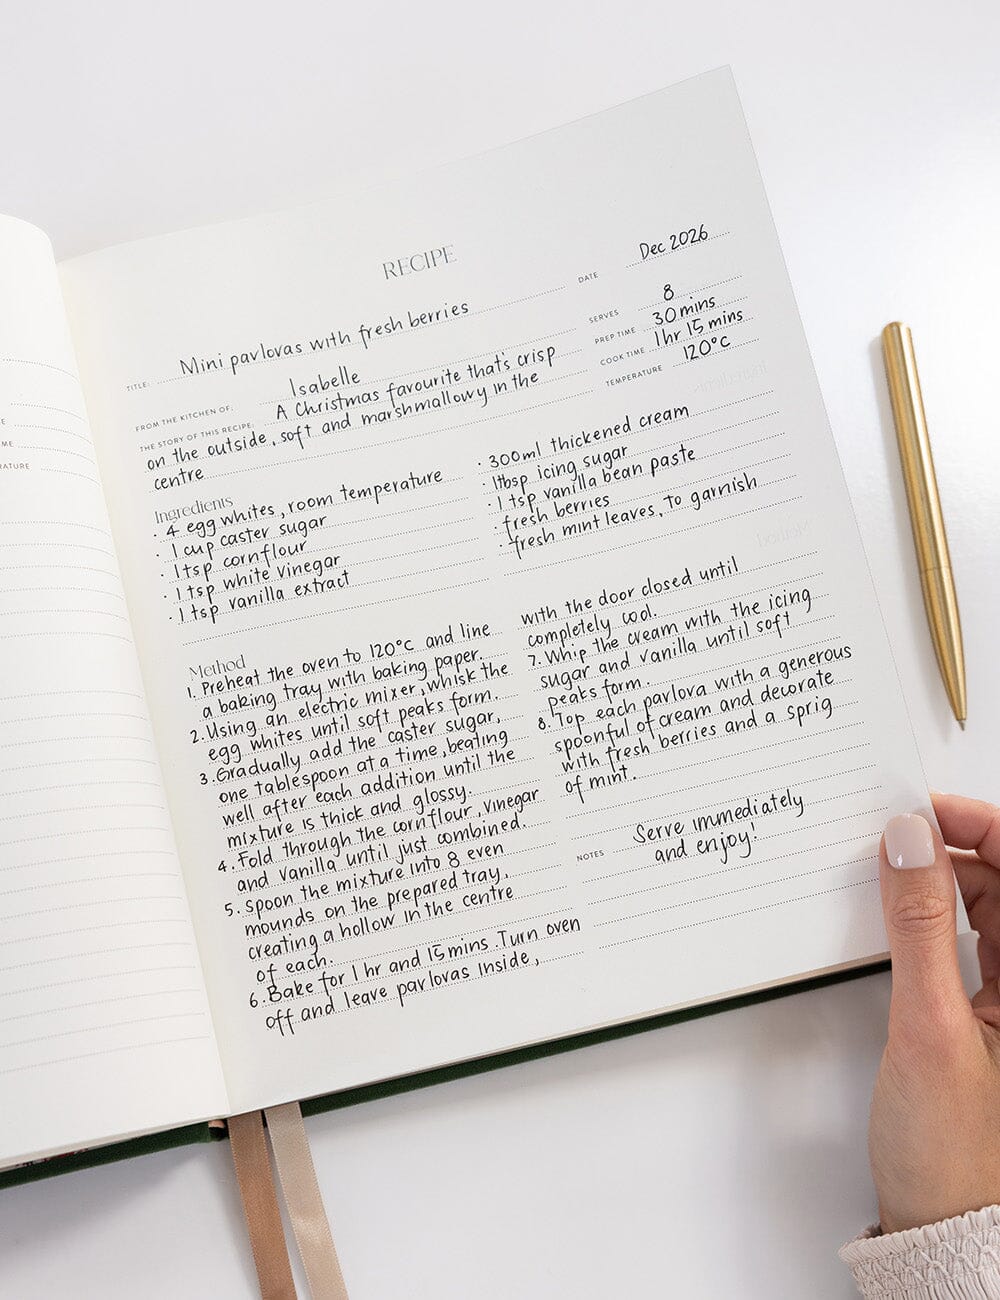 RECIPE
DATE Dec 2026
TITLE: Mini pavlovas with fresh berries
SERVES 8
PREP TIME 30 mins
COOK TIME 1 hr 15 mins
TEMPERATURE 120°C
FROM THE KITCHEN OF: Isabelle
THE STORY OF THIS RECIPE: A Christmas favourite that's crisp
on the outside, soft and marshmallowy in the
centre
Ingredients
· 4 egg whites, room temperature
· 1 cup caster sugar
· 1 tsp cornflour
· 1 tsp white vinegar
· 1 tsp vanilla extract
· 300ml thickened cream
· 1 tbsp icing sugar
· 1 tsp vanilla bean paste
· fresh berries
· fresh mint leaves, to garnish
Method
1. Preheat the oven to 120°C and line
a baking tray with baking paper.
2. Using an electric mixer, whisk the
egg whites until soft peaks form.
3. Gradually add the caster sugar,
one tablespoon at a time, beating
well after each addition until the
mixture is thick and glossy.
4. Fold through the cornflour, vinegar
and vanilla until just combined.
5. Spoon the mixture into 8 even
mounds on the prepared tray,
creating a hollow in the centre
of each.
6. Bake for 1 hr and 15 mins. Turn oven
off and leave pavlovas inside,
with the door closed until
completely cool.
7. Whip the cream with the icing
sugar and vanilla until soft
peaks form.
8. Top each pavlova with a generous
spoonful of cream and decorate
with fresh berries and a sprig
of mint.
NOTES Serve immediately
and enjoy!